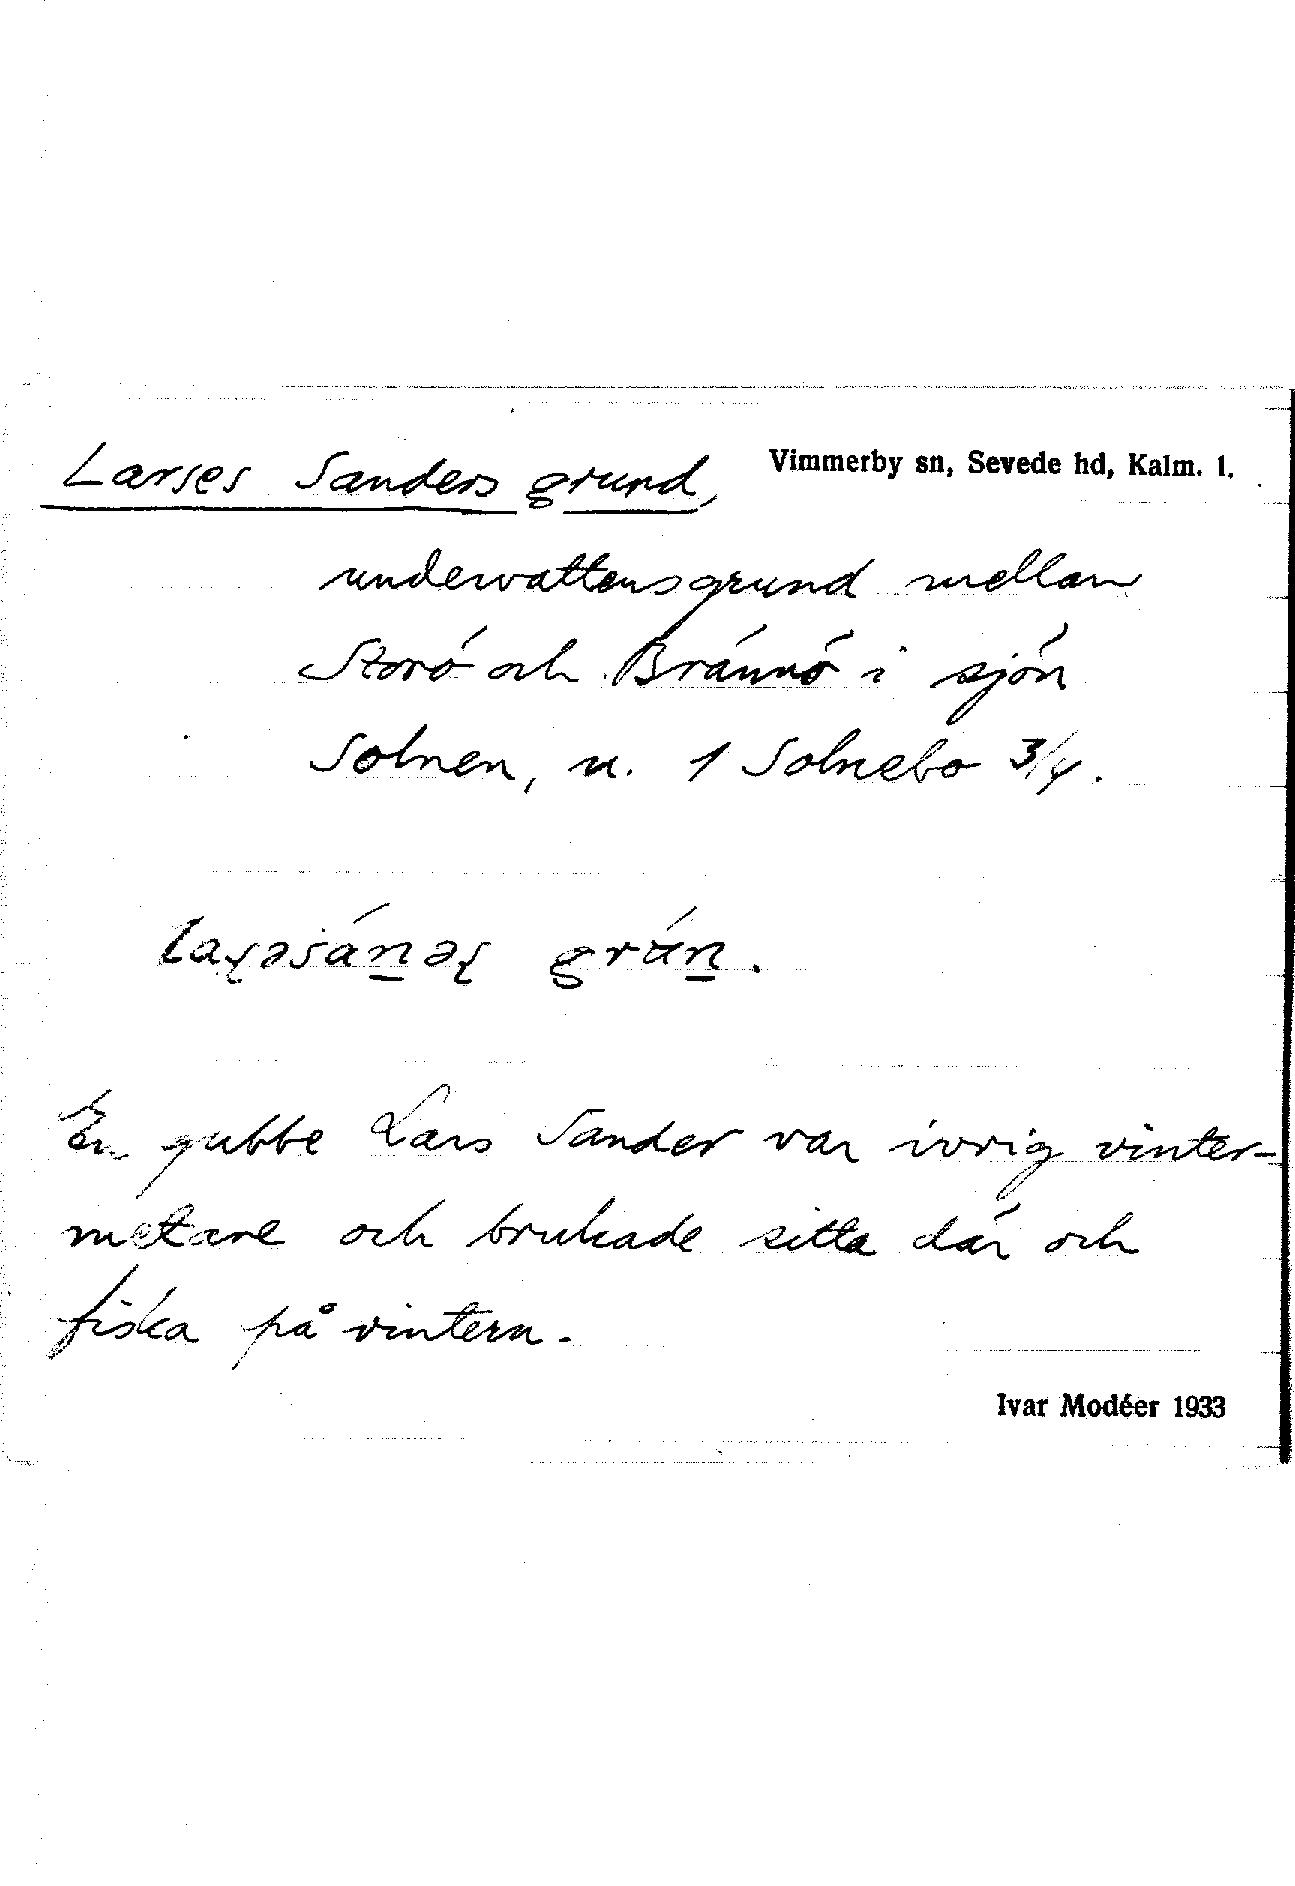 Larses Sanders grund,
Vimmerby sn, Sevede hd, Kalm. l.
undervattensgrund mellan
Storö och Brännö i sjön
Solnen, u. 1 Solnebo 3/4.
En gubbe Lars Sander var ivrig vinter-
metare och brukade sitta där och
fiska på vintern.
Ivar Modéer 1933